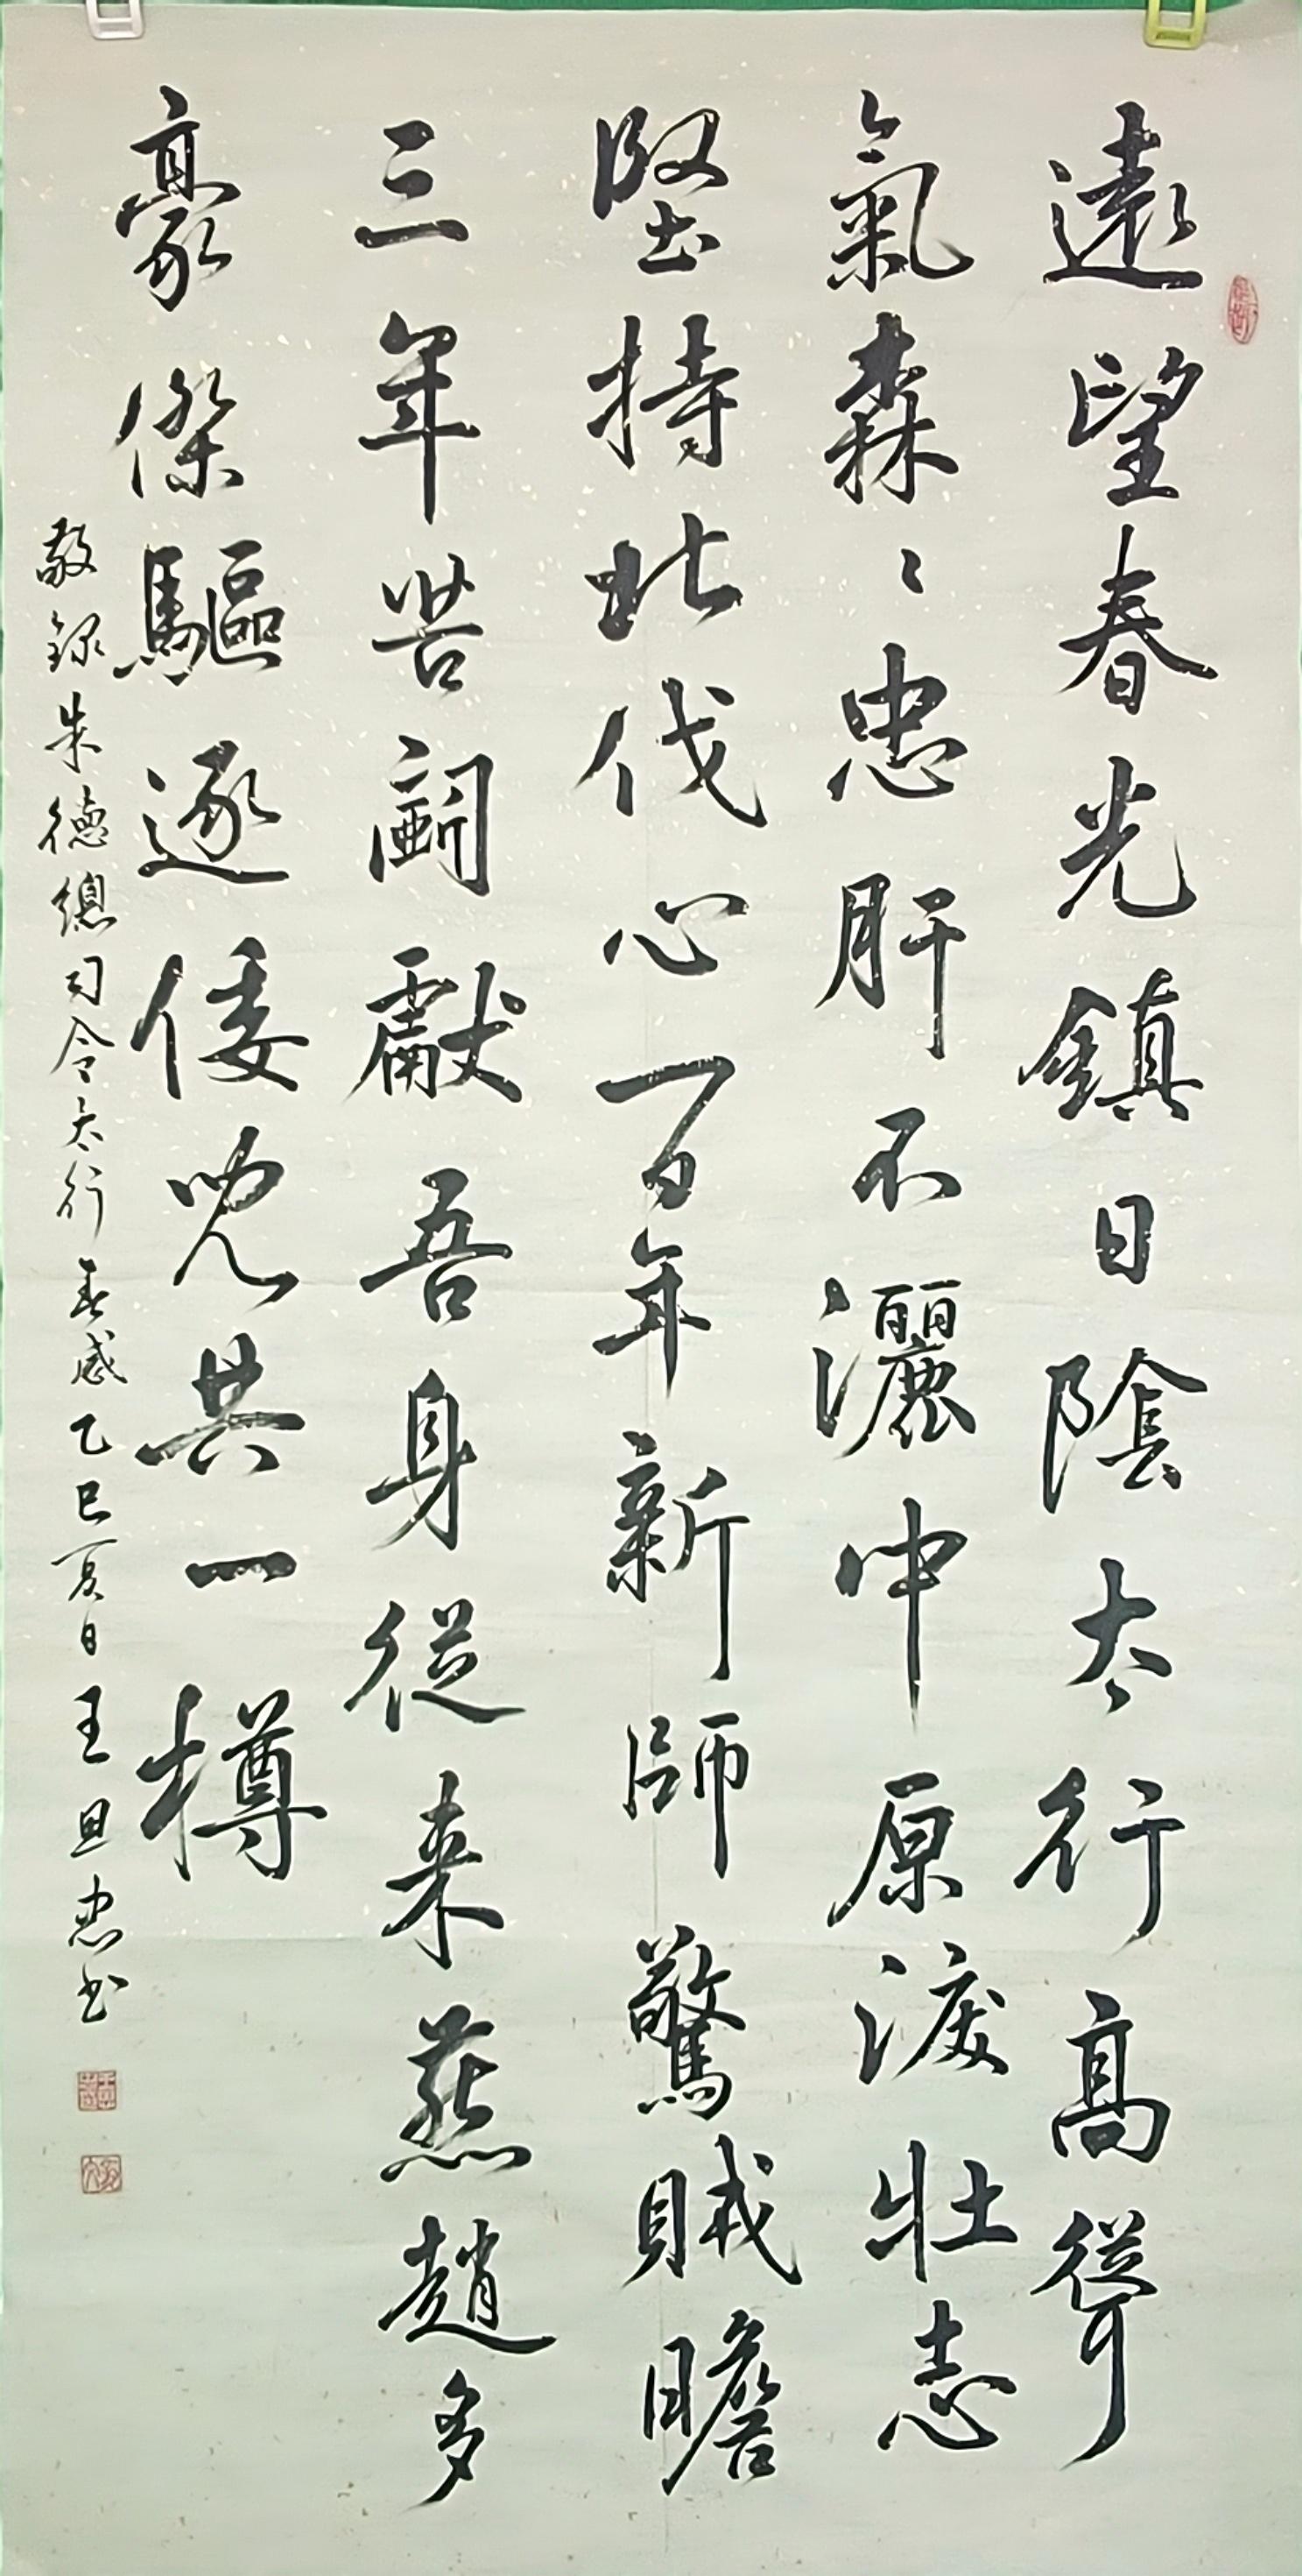 遠望春光鎮日陰太行高聳
氣森〻忠肝不灑中原淚壯志
堅持北伐心百年新師驚賊瞻
三年苦鬭獻吾身從来燕趙多
豪傑驅逐倭兒共一樽
敬録朱德總司令太行春感乙巳夏日王思忠书